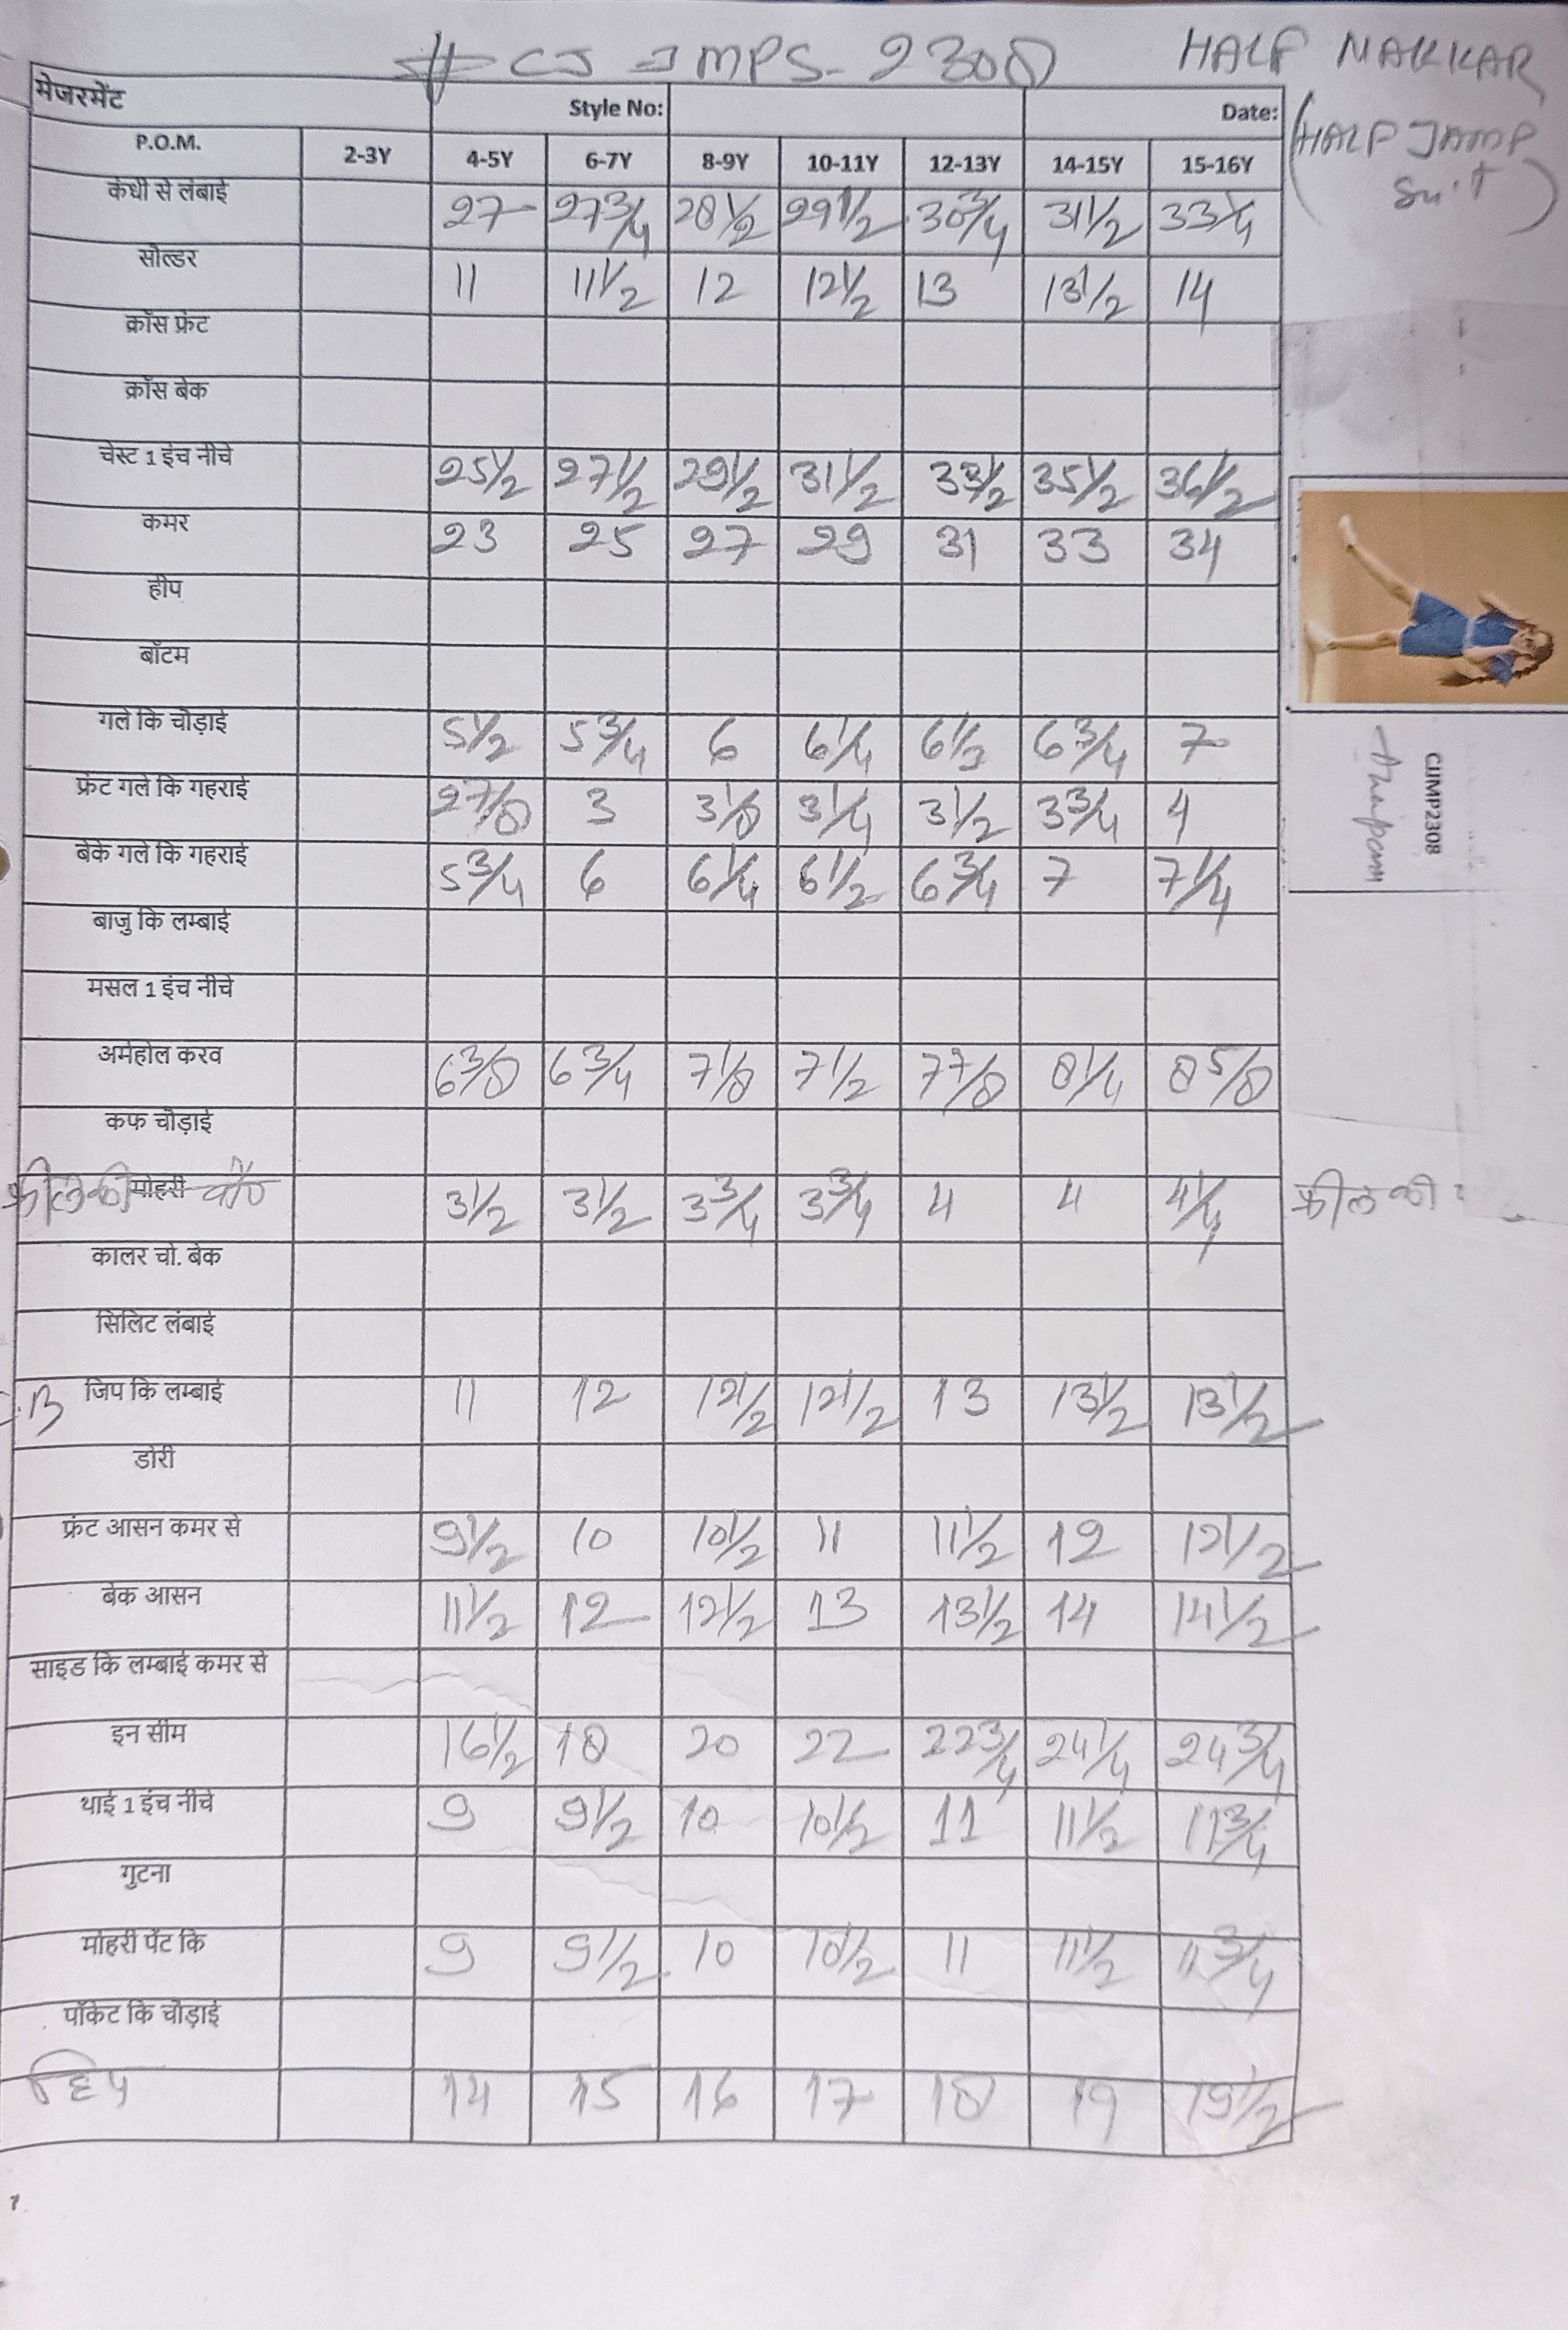 # CJ JMPS-2308 HALF MAKKAR
(HALF JAMP
Suit)
मेजरमेंट Style No: Date:
P.O.M. 2-3Y 4-5Y 6-7Y 8-9Y 10-11Y 12-13Y 14-15Y 15-16Y
कंधी से लंबाई 27 27 3/4 28 1/2 29 1/2 30 3/4 31 1/2 33 1/4
सोल्डर 11 11 1/2 12 12 1/2 13 13 1/2 14
क्रॉस फ्रंट
क्रॉस बेक
चेस्ट 1 इंच नीचे 25 1/2 27 1/2 29 1/2 31 1/2 33 1/2 35 1/2 36 1/2
कमर 23 25 27 29 31 33 34
हीप
बॉटम
गले कि चोड़ाई 5 1/2 5 3/4 6 6 1/4 6 1/2 6 3/4 7
फ्रंट गले कि गहराई 2 7/8 3 3 1/8 3 1/4 3 1/2 3 3/4 4
बेक गले कि गहराई 5 3/4 6 6 1/4 6 1/2 6 3/4 7 7 1/4
CJMP2308
Anupam
बाजु कि लम्बाई
मसल 1 इंच नीचे
अर्महोल करव 6 3/8 6 3/4 7 1/8 7 1/2 7 7/8 8 1/4 8 5/8
कफ चौड़ाई
फ्रील की मोहरी 3 1/2 3 1/2 3 3/4 3 3/4 4 4 4 1/4 फ्रील की
कालर चो. बेक
सिलिट लंबाई
जिप कि लम्बाई 11 12 12 1/2 12 1/2 13 13 1/2 13 1/2
डोरी
फ्रंट आसन कमर से 9 1/2 10 10 1/2 11 11 1/2 12 12 1/2
बेक आसन 11 1/2 12 12 1/2 13 13 1/2 14 14 1/2
साइड कि लम्बाई कमर से
इन सीम 16 1/2 18 20 22 22 3/4 24 1/4 24 3/4
थाई 1 इंच नीचे 9 9 1/2 10 10 1/2 11 11 1/2 11 3/4
गुटना
मोहरी पेंट कि 9 9 1/2 10 10 1/2 11 11 1/2 11 3/4
पॉकेट कि चौड़ाई
हिप 14 15 16 17 18 19 19 1/2